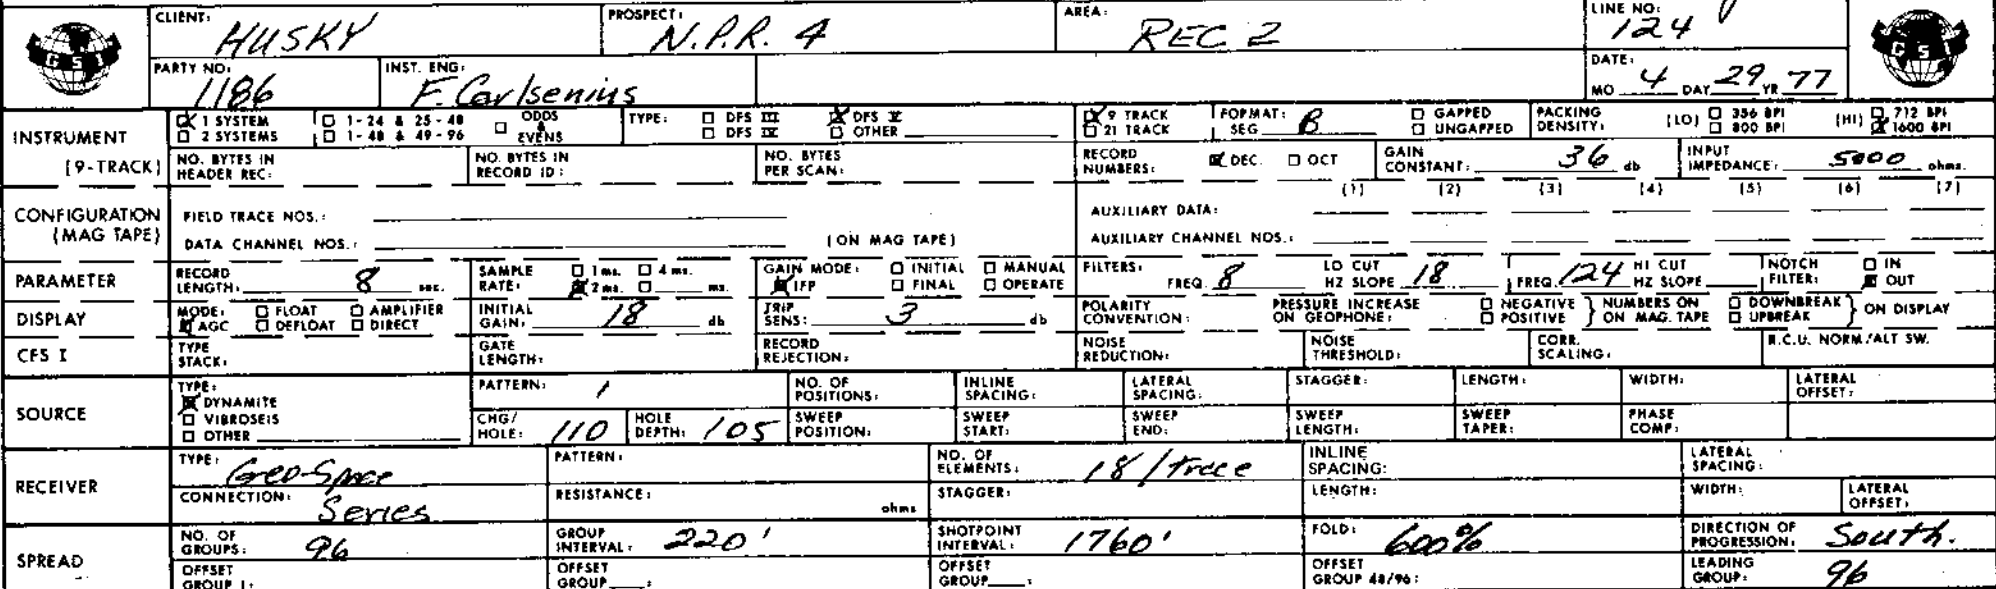 CLIENT: HUSKY PROSPECT: N.P.R. 4 AREA: REC 2 LINE NO: 124
GSI GSI
PARTY NO: 1186 INST. ENG: F. Carlsenius DATE: MO 4 DAY 29 YR 77
INSTRUMENT 1 SYSTEM 1-24 & 25-48 ODDS & EVENS TYPE: DFS III DFS V 9 TRACK FORMAT: SEG B GAPPED PACKING DENSITY: (LO) 356 BPI (HI) 712 BPI
2 SYSTEMS 1-48 & 49-96 DFS IV OTHER 21 TRACK UNGAPPED 800 BPI 1600 BPI
(9-TRACK) NO. BYTES IN HEADER REC: NO. BYTES IN RECORD ID: NO. BYTES PER SCAN: RECORD NUMBERS: DEC. OCT GAIN CONSTANT: 36 db INPUT IMPEDANCE: 5000 ohms.
(1) (2) (3) (4) (5) (6) (7)
CONFIGURATION (MAG TAPE) FIELD TRACE NOS.: AUXILIARY DATA:
DATA CHANNEL NOS.: (ON MAG TAPE) AUXILIARY CHANNEL NOS.:
PARAMETER RECORD LENGTH: 8 sec. SAMPLE RATE: 1 ms. 4 ms. 2 ms. ms. GAIN MODE: INITIAL MANUAL IFP FINAL OPERATE FILTERS: FREQ. 8 LO CUT HZ SLOPE 18 FREQ. 124 HI CUT HZ SLOPE NOTCH FILTER: IN OUT
DISPLAY MODE: FLOAT AMPLIFIER AGC DEFLOAT DIRECT INITIAL GAIN: 18 db TRIP SENS: 3 db POLARITY CONVENTION: PRESSURE INCREASE ON GEOPHONE: NEGATIVE POSITIVE } NUMBERS ON ON MAG. TAPE DOWNBREAK UPBREAK } ON DISPLAY
CFS I TYPE STACK: GATE LENGTH: RECORD REJECTION: NOISE REDUCTION: NOISE THRESHOLD: CORR. SCALING: R.C.U. NORM./ALT SW.
SOURCE TYPE: DYNAMITE VIBROSEIS OTHER PATTERN: 1 NO. OF POSITIONS: INLINE SPACING: LATERAL SPACING: STAGGER: LENGTH: WIDTH: LATERAL OFFSET:
CHG/HOLE: 110 HOLE DEPTH: 105 SWEEP POSITION: SWEEP START: SWEEP END: SWEEP LENGTH: SWEEP TAPER: PHASE COMP:
RECEIVER TYPE: Geo-Space PATTERN: NO. OF ELEMENTS: 18/trace INLINE SPACING: LATERAL SPACING:
CONNECTION: Series RESISTANCE: ohms STAGGER: LENGTH: WIDTH: LATERAL OFFSET:
SPREAD NO. OF GROUPS: 96 GROUP INTERVAL: 220' SHOTPOINT INTERVAL: 1760' FOLD: 600% DIRECTION OF PROGRESSION: South.
OFFSET GROUP 1: OFFSET GROUP : OFFSET GROUP : OFFSET GROUP 48/96: LEADING GROUP: 96